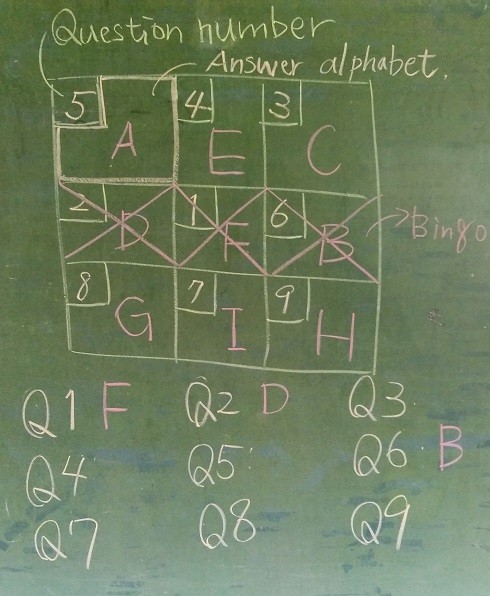 Question number
Answer alphabet.
5 4 3
A E C
2 1 6
D F B
Bingo
8 7 9
G I H
Q1 F Q2 D Q3
Q4 Q5 Q6 B
Q7 Q8 Q9